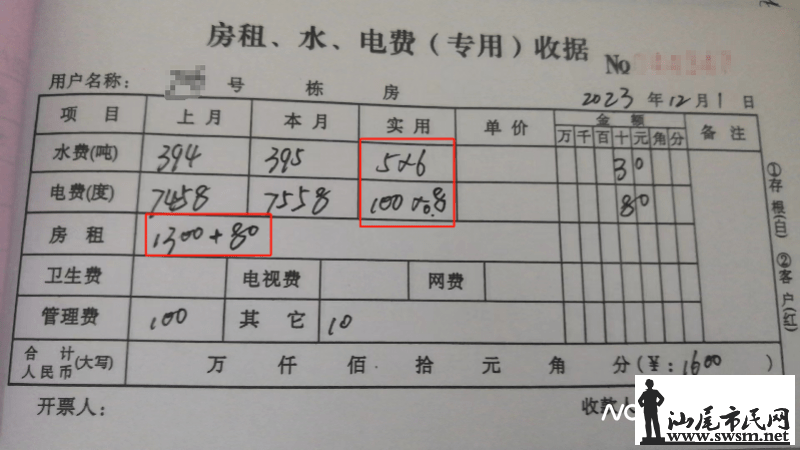 房租、水、电费(专用)收据
No
用户名称: 号 栋 房 2023年12月1日
项 目 上 月 本 月 实 用 单 价 金 额 备 注
万 千 百 十 元 角 分
水费(吨) 394 395 5×6 30
电费(度) 7458 7558 100×0.8 80
房 租 1300+80
卫生费 电视费 网费
管理费 100 其 它 10
合 计 人民币 (大写) 万 仟 佰 拾 元 角 分(¥:1600)
开票人: 收款人
①存根(白) ②客户(红)
汕尾市民网
www.swsm.net